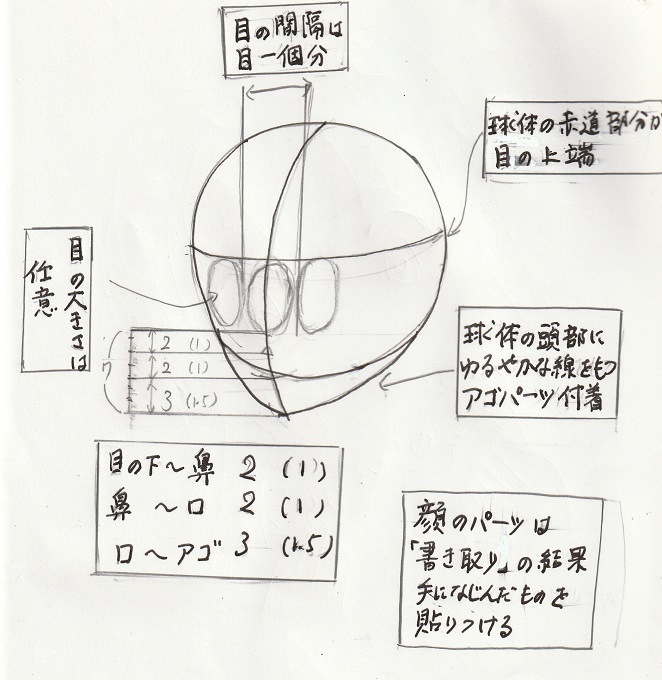 目の間隔は
目一個分
球体の赤道部分が
目の上端
目の大きさは
任意
2 (1)
2 (1)
3 (1.5)
7
球体の頭部に
ゆるやかな線をもつ
アゴパーツ付着
目の下～鼻 2 (1)
鼻～口 2 (1)
口～アゴ 3 (1.5)
顔のパーツは
「書き取り」の結果
手になじんだものを
貼りつける